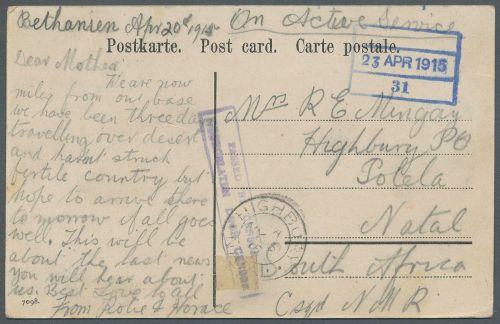 Bethanien Apr 20th 1915
On Active Service
Postkarte. Post card. Carte postale.
23 APR 1915
31
Dear Mother
We are now
miles from our base
we have been three days
travelling over desert
and havnt struck
fertile country but
hope to arrive there
to morrow if all goes
well. This will be
about the last news
you will hear about
us. Best Love to all
From & Horace
7098.
Mrs R E Mingay
Highbury PO
Polela
Natal
South Africa
NMR
PASSED